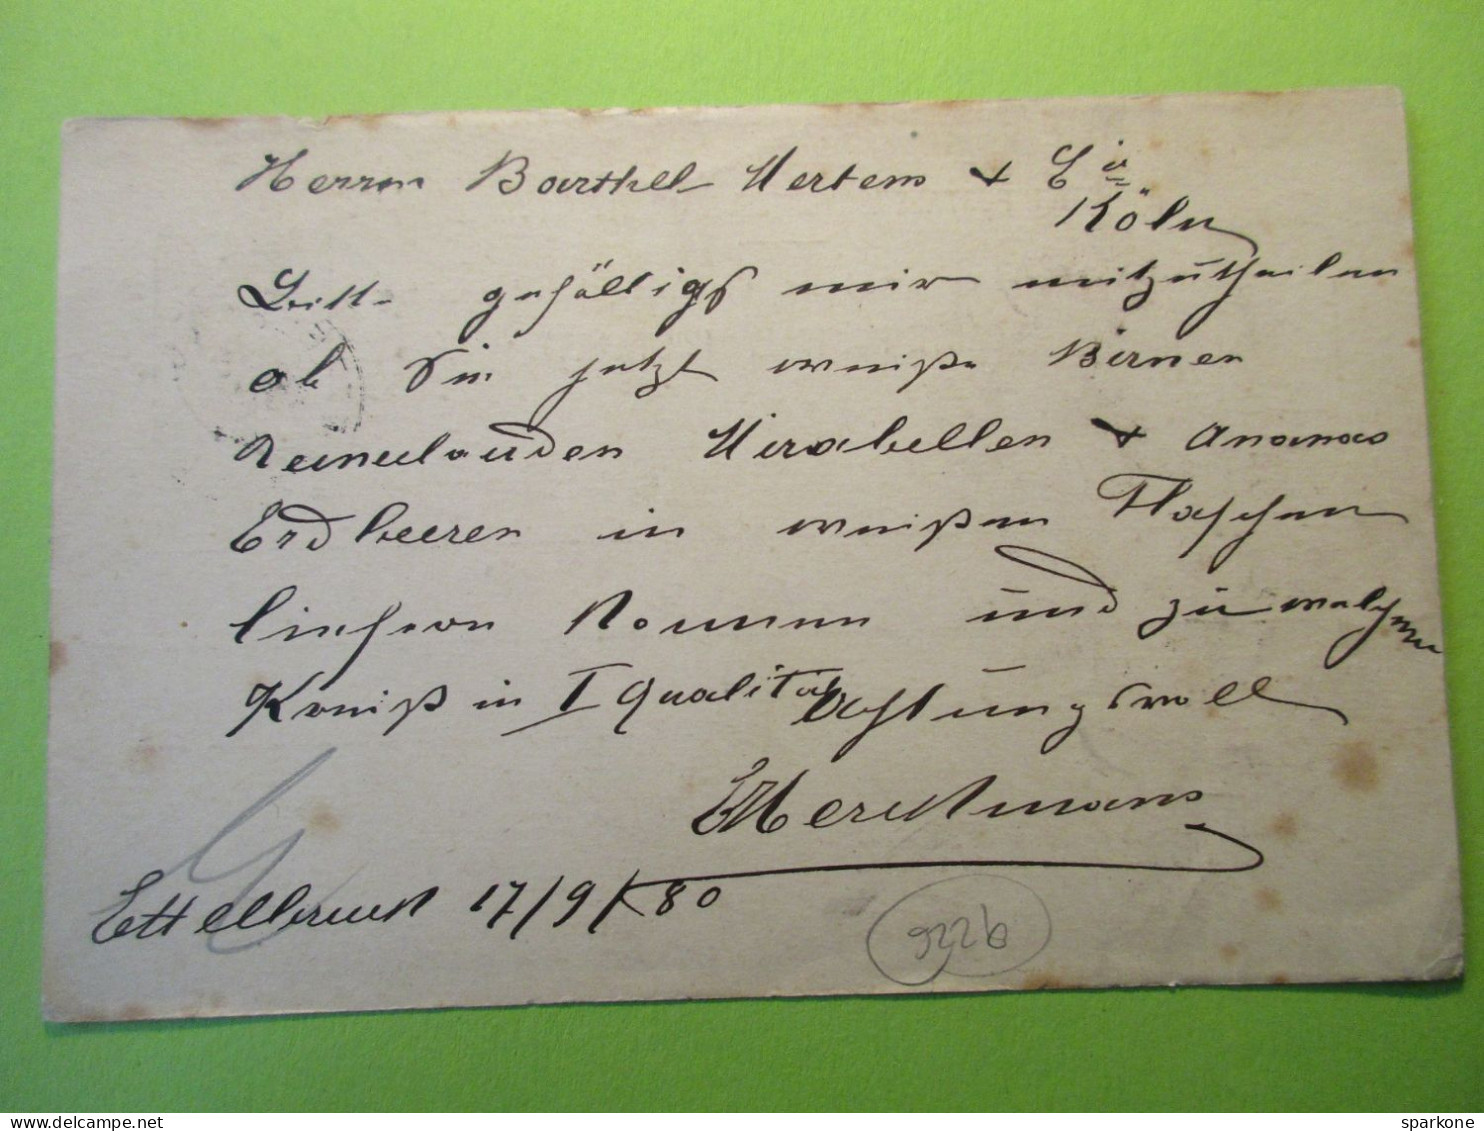 Herren Barthel Mertens & Cie
Köln
Bitte gefälligst mir mitzutheilen
ob Sie jetzt weiße Birnen
Reineclauden Mirabellen & Ananas
Erdbeeren in weißen Flaschen
liefern können und zu welchem
Preiß in I Qualität Achtungsvoll
Ettelbruck 17/9/80
9226
sparkone